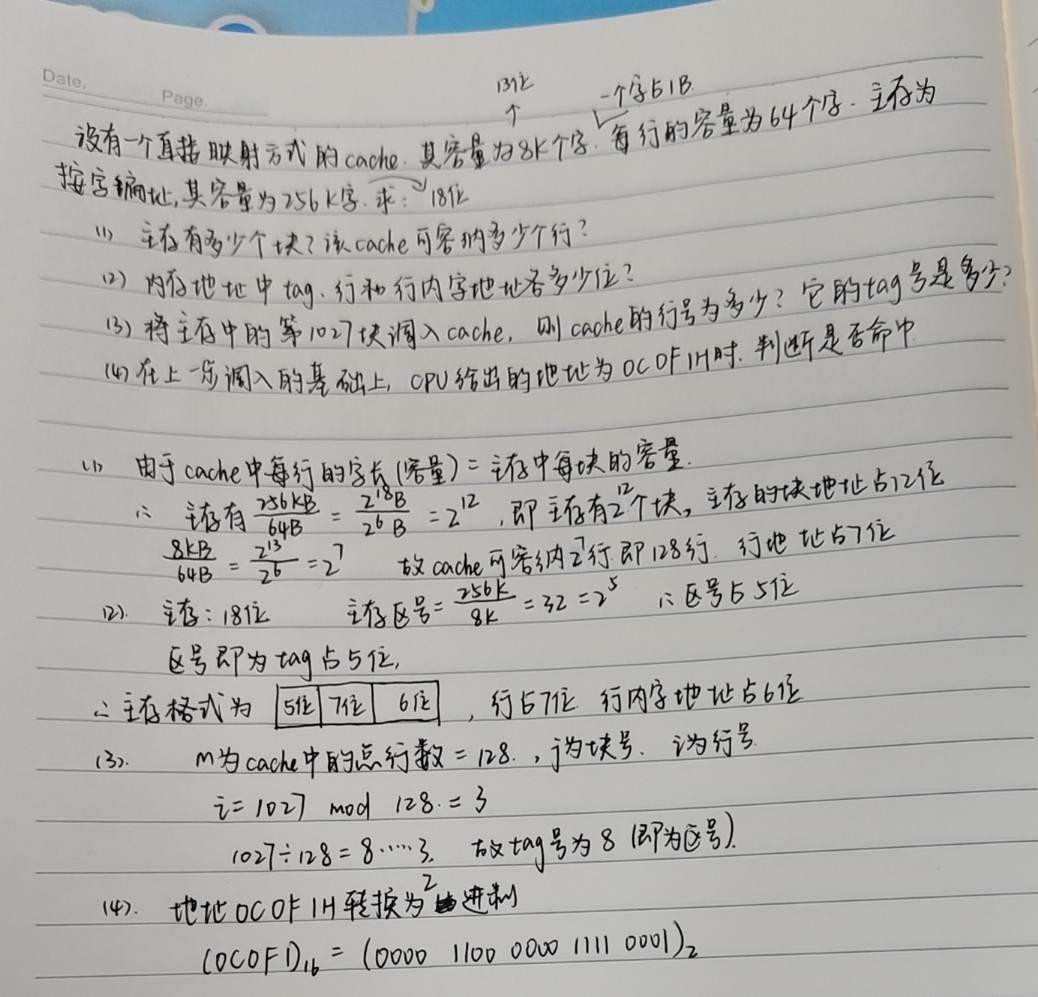 Date.
Page.
13位 一个字占1B
↑
设有一个直接映射方式的cache.其容量为8K个字.每行的容量为64个字.主存为
按字编址,其容量为256K字.求: 18位
(1) 主存有多少个块?该cache可容纳多少个行?
(2) 内存地址中tag、行和行内字地址各多少位?
(3) 将主存中的第1027块调入cache,则cache的行号为多少?它的tag号是多少?
(4) 在上一步调入的基础上,CPU给出的地址为0C0F1H时.判断是否命中
(1) 由于cache中每行的字长(容量)=主存中每块的容量.
∴ 主存有256KB/64B = 2^18B/2^6B = 2^12 ,即主存有2^12个块。主存的块地址占12位
8KB/64B = 2^13/2^6 = 2^7 故cache可容纳2^7行.即128行. 行地址占7位
(2). 主存:18位 主存区号=256K/8K = 32 = 2^5 ∴区号占5位
区号即为tag占5位,
∴主存格式为 5位 7位 6位 ,行占7位 行内字地址占6位
(3). m为cache中的总行数=128. ,j为块号、i为行号
i=1027 mod 128.=3
1027÷128=8……3. 故tag号为8(即为区号).
(4). 地址0C0F1H转换为2进制
(0C0F1)16 = (0000 1100 0000 1111 0001)2